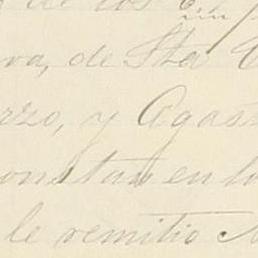 de los
sin
va, de Sta C
rzo, y Agas
onstan en lo
le remitio